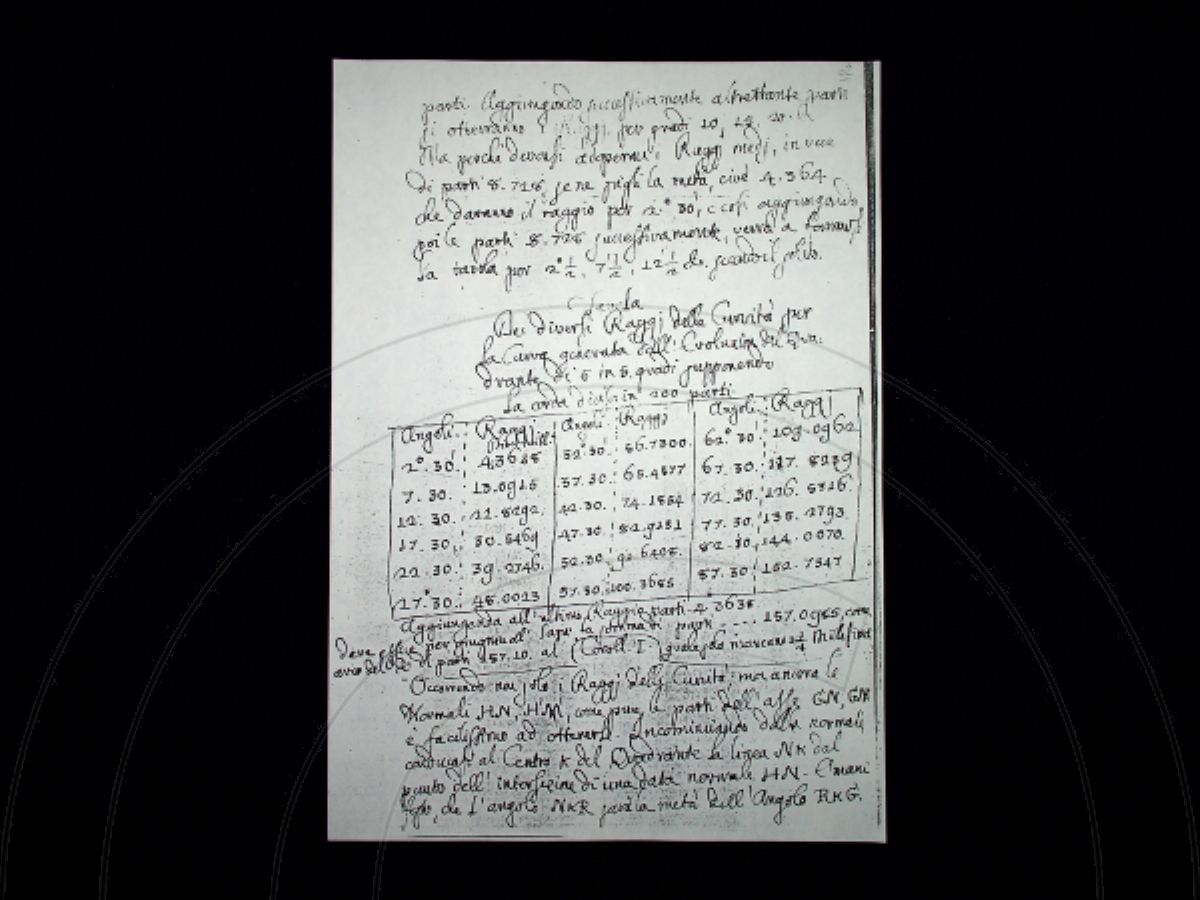 parti. Aggiungendo successivamente altrettante parti
si otterranno i Raggj per gradi 10, 15, 20.
Ma perchè devonsi adoperar i Raggj medj, in vece
di parti 8.726, se ne pigli la metà, cioè 4.364
che daranno il raggio per 2.° 30', e così aggiungendo
poi le parti 8.726 successivamente, verrà a formarsi
la tavola per 2°½, 7½, 12½ &c. secondo il solito.
Tavola
De diversi Raggj delle Curvità per
la Curva generata dall' Evoluzion del Qua:
drante di 5 in 5. gradi supponendo
la corda divisa in 200 parti
Angoli. Raggj Angoli Raggj Angoli Raggj
2°. 30. 4.3638 32°. 30. 56.7300. 62°. 30. 109.0962
7. 30. 13.0915 37. 30. 65.4577 67. 30. 117. 8239
12. 30. 21.8292. 42. 30. 74.1854 72. 30. 126. 5516.
17. 30. 30.5469 47. 30. 82.9131 77. 30. 135. 2793.
22. 30. 39.2746. 52. 30. 91.6408. 82. 30. 144. 0070.
27°. 30. 48.0023 57. 30. 100.3685 87. 30 152. 7347
Aggiungendo all' ultimo Raggio parti 4.3638
per giugner all' la somma di parti ---- 157.0985, come
deve essere di parti 157.10. al (Coroll. I) mancano Millesimi
Occorrendo non solo i Raggj delle Curvità ma ancora le
Normali HN, HM, come pure le parti dell' asse GN, GM
è facilissimo ad ottenersi. Incominciando dalle normali
conducasi al Centro K del Quadrante la linea NK dal
punto dell' intersezione di una data normale HN. È mani
festo, che l'angolo NKR sarà la metà dell' Angolo RKG.